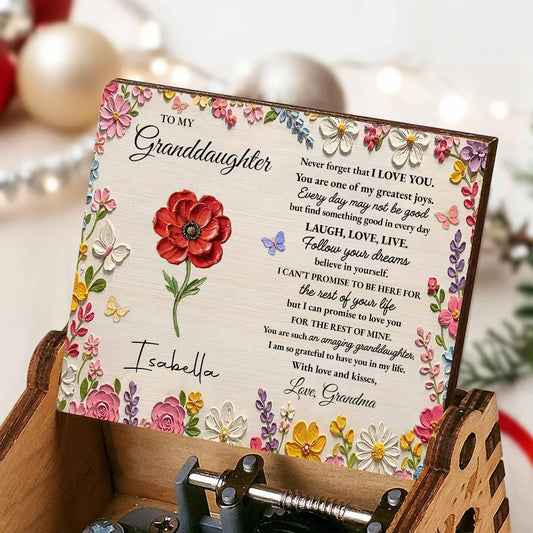 TO MY
Granddaughter
Isabella
Never forget that I LOVE YOU.
You are one of my greatest joys.
Every day may not be good
but find something good in every day
LAUGH, LOVE, LIVE.
Follow your dreams
believe in yourself.
I CAN'T PROMISE TO BE HERE FOR
the rest of your life
but I can promise to love you
FOR THE REST OF MINE.
You are such an amazing granddaughter,
I am so grateful to have you in my life.
With love and kisses,
Love, Grandma